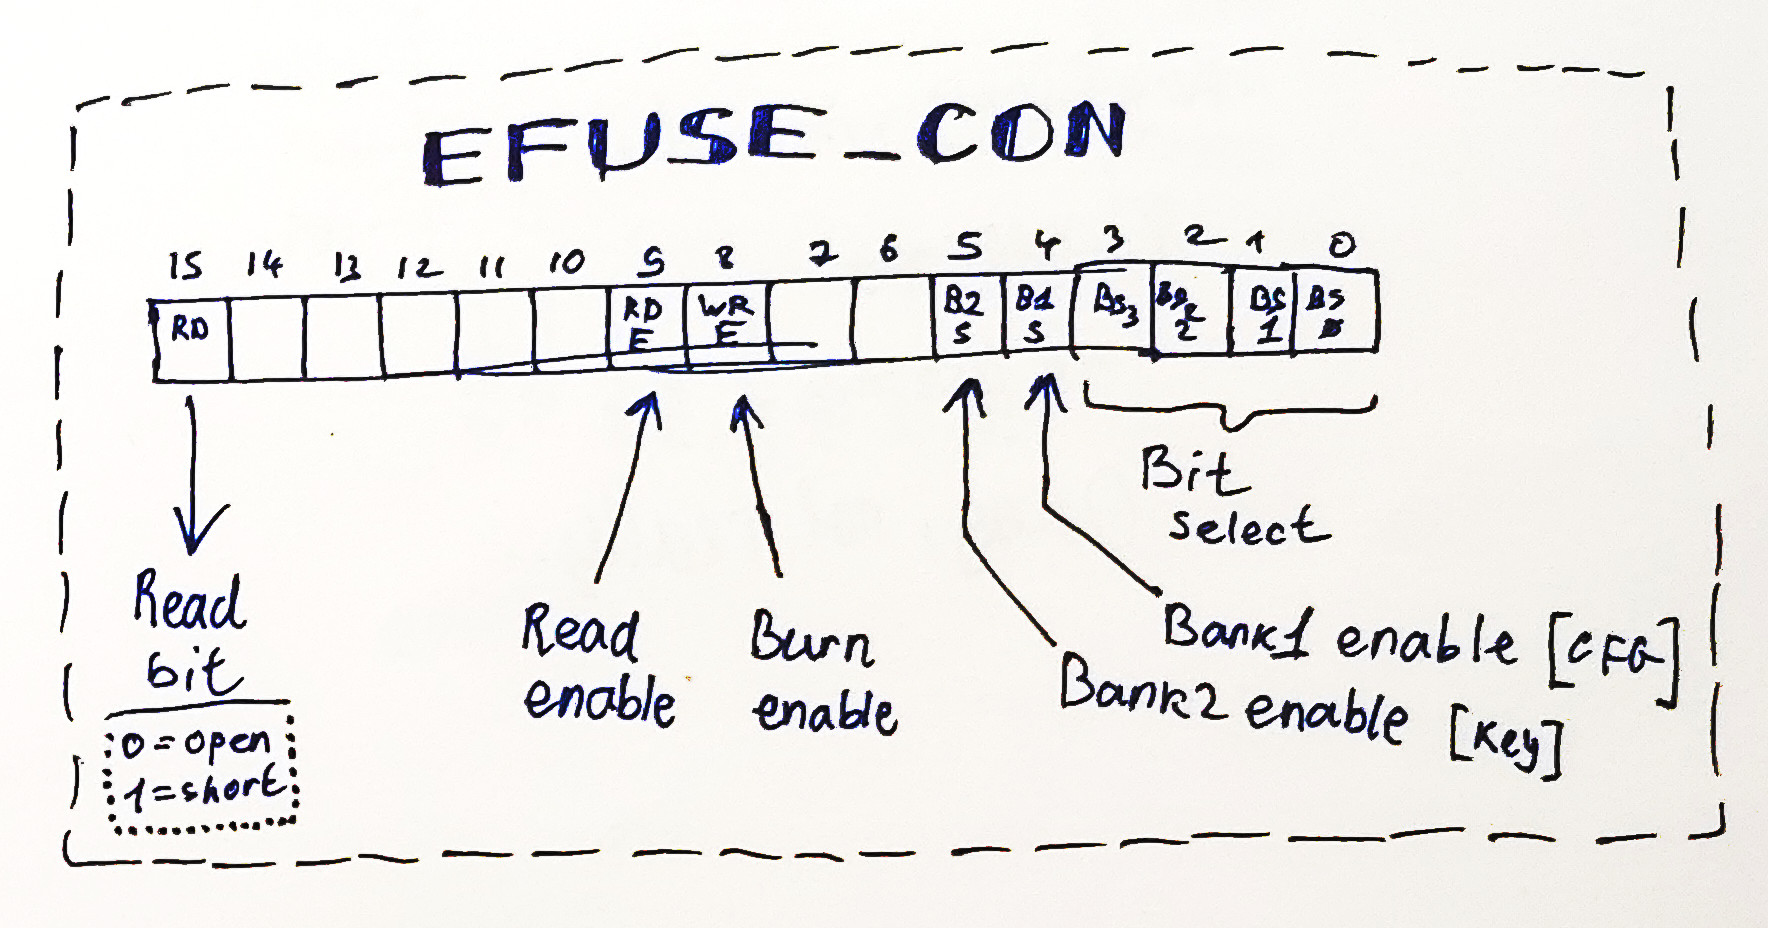 EFUSE_CON
15 14 13 12 11 10 9 8 7 6 5 4 3 2 1 0
RD RD WR B2 B1 BS3 BS BS
E E S S 2 1
Read
bit
0=open
1=short
Read
enable
Burn
enable
Bit
select
Bank1 enable [CFG]
Bank2 enable [Key]